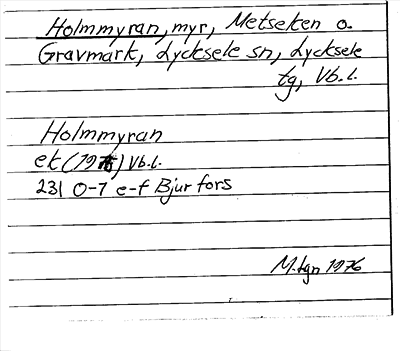 Holmmyran, myr, Metseken o.
Gravmark, Lycksele sn, Lycksele
tg, Vb.l.
Holmmyran
ek (1975) Vb.l.
231 0-7 e-f Bjurfors
M.tgn 1976